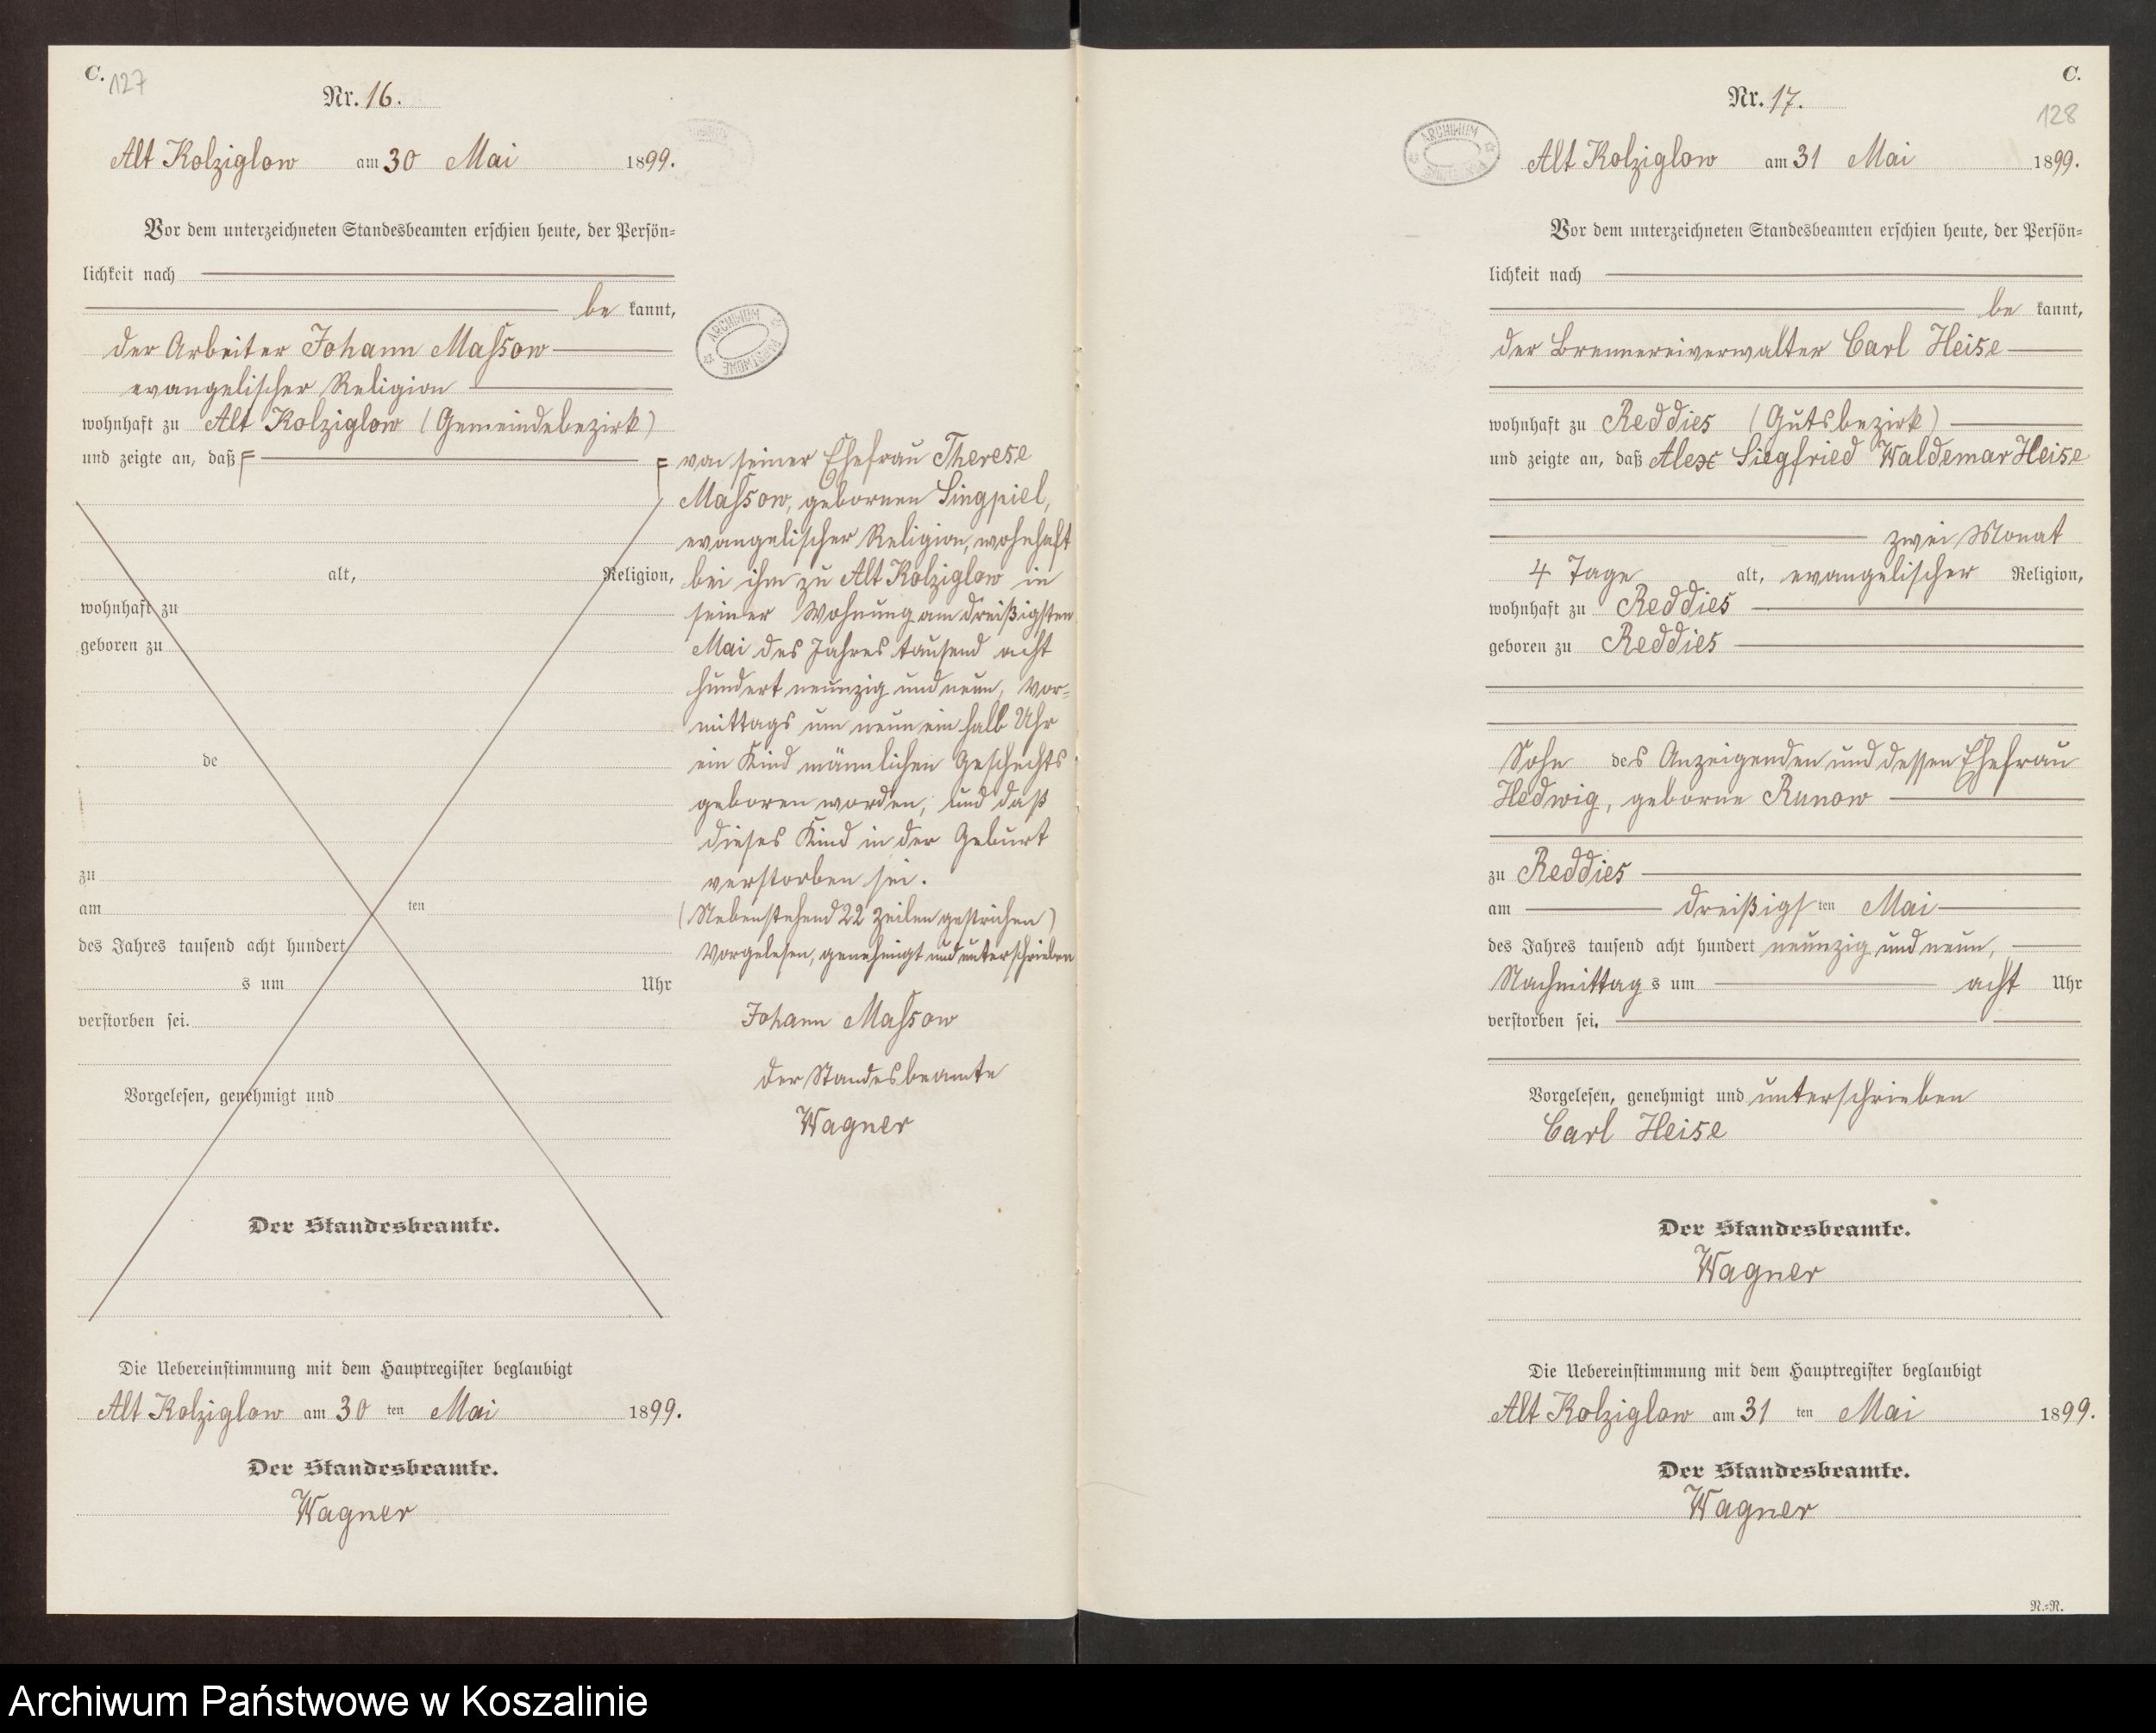 C. 127
Nr. 16.
Alt Kolziglow am 30 Mai 1899.
Vor dem unterzeichneten Standesbeamten erschien heute, der Persön=
lichkeit nach
be kannt,
der Arbeiter Johann Massow
evangelischer Religion
wohnhaft zu Alt Kolziglow (Gemeindebezirk)
und zeigte an, daß
alt, Religion,
wohnhaft zu
geboren zu
de
zu
am ten
des Jahres tausend acht hundert
s um Uhr
verstorben sei.
Vorgelesen, genehmigt und
Der Standesbeamte.
Die Uebereinstimmung mit dem Hauptregister beglaubigt
Alt Kolziglow am 30 ten Mai 1899.
Der Standesbeamte.
Wagner
ARCHIWUM
von seiner Ehefrau Therese
Massow, gebornen Singpiel,
evangelischer Religion, wohnhaft
bei ihm zu Alt Kolziglow in
seiner Wohnung am dreißigsten
Mai des Jahres tausend acht
hundert neunzig und neun, Vor=
mittags um neun ein halb Uhr
ein Kind männlichen Geschechts
geboren worden, und daß
dieses Kind in der Geburt
verstorben sei.
(Nebenstehend 22 Zeilen gestrichen)
Vorgelesen, genehmigt und unterschrieben
Johann Massow
Der Standesbeamte
Wagner
C.
128
Nr. 17.
ARCHIWUM
Alt Kolziglow am 31 Mai 1899.
Vor dem unterzeichneten Standesbeamten erschien heute, der Persön=
lichkeit nach
be kannt,
der Brennereiverwalter Carl Heise
wohnhaft zu Reddies (Gutsbezirk)
und zeigte an, daß Alex Siegfried Waldemar Heise
zwei Monat
4 Tage alt, evangelischer Religion,
wohnhaft zu Reddies
geboren zu Reddies
Sohn des Anzeigenden und dessen Ehefrau
Hedwig, geborne Runow
zu Reddies
am dreißigsten Mai
des Jahres tausend acht hundert neunzig und neun,
Nachmittag s um acht Uhr
verstorben sei.
Vorgelesen, genehmigt und unterschrieben
Carl Heise
Der Standesbeamte.
Wagner
Die Uebereinstimmung mit dem Hauptregister beglaubigt
Alt Kolziglow am 31 ten Mai 1899.
Der Standesbeamte.
Wagner
N.=N.
Archiwum Państwowe w Koszalinie